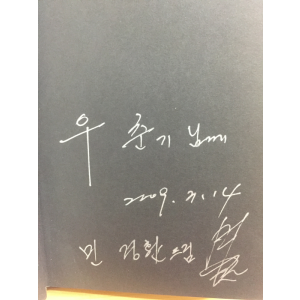 우 준기 님께
2009. 7. 14
민 경환 드림